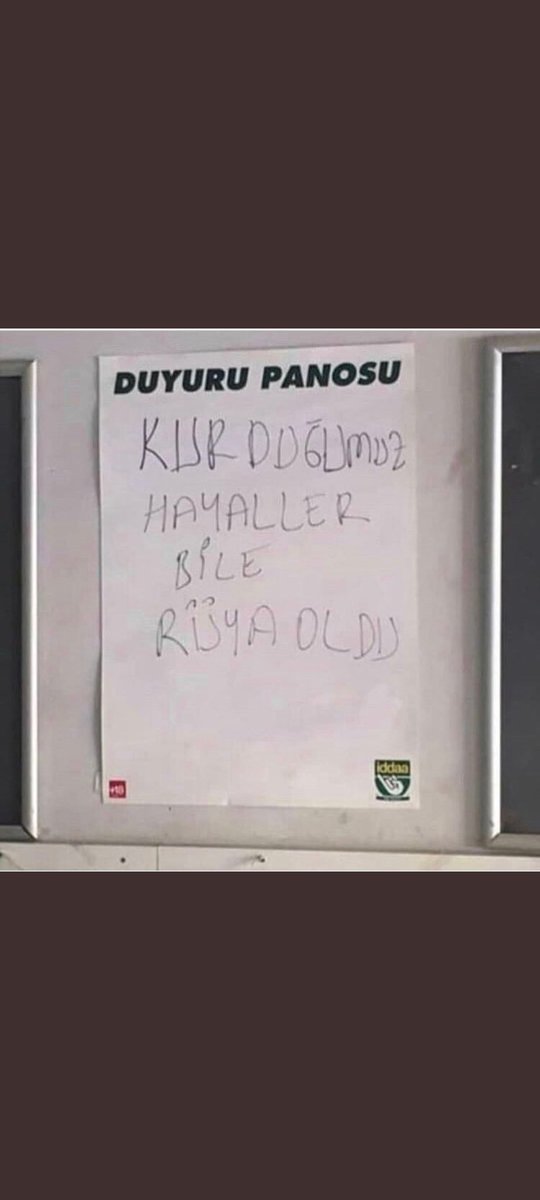 DUYURU PANOSU
KURDUĞUMUZ
HAYALLER
BİLE
RÜYA OLDU
iddaa
+18